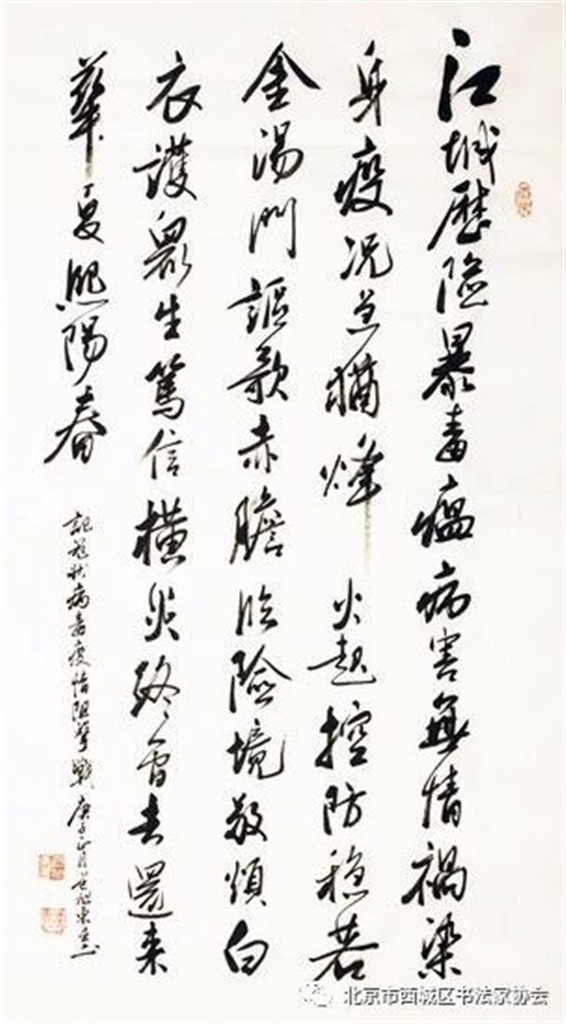 江城歷險暴毒瘟病害無情禍染
身疫況差猶烽火起控防穩若
金湯門謳歌赤膽臨險境敬頌白
衣護眾生篤信橫災終會去還来
華夏熙陽春
記冠狀病毒疫情阻擊戰庚子正月
北京市西城区书法家协会